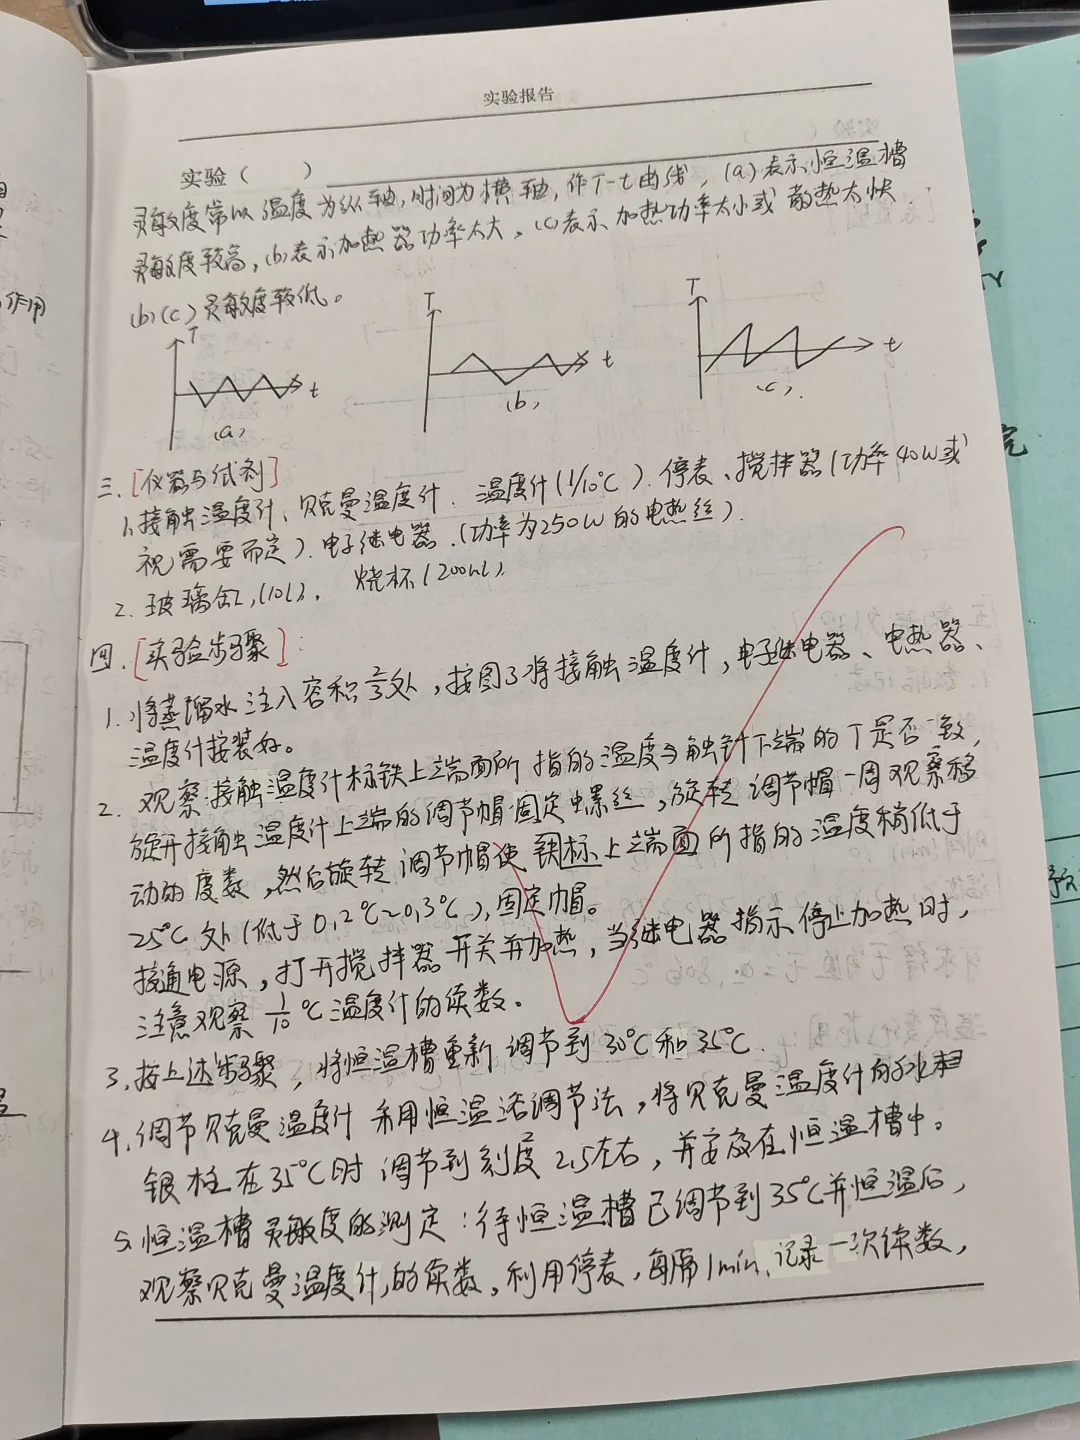 实验报告
实验（ ）
灵敏度常以温度为纵轴，时间为横轴，作T-t曲线，(a)表示恒温槽
灵敏度较高，(b)表示加热器功率太大，(c)表示加热功率太小或散热太快
(b)(c)灵敏度较低。
T
t
(a)
T
t
(b)
T
t
(c)
三.[仪器与试剂]
1.接触温度计、贝克曼温度计.温度计(1/10℃).停表、搅拌器(功率40W或
视需要而定).电子继电器.(功率为250W的电热丝).
2.玻璃缸,(10L),烧杯(200mL).
四.[实验步骤]:
1.将蒸馏水注入容积2/3处，按图3将接触温度计，电子继电器、电热器、
温度计按装好。
2.观察接触温度计标铁上端面所指的温度与触针下端的T是否一致，
旋开接触温度计上端的调节帽固定螺丝，旋转调节帽一周观察移
动的度数，然后旋转调节帽使铁标上端面所指的温度稍低于
25℃处(低于0.2℃~0.3℃),固定帽。
接通电源，打开搅拌器开关并加热，当继电器指示停止加热时，
注意观察1/10℃温度计的读数。
3.按上述步骤，将恒温槽重新调节到30℃和35℃.
4.调节贝克曼温度计 采用恒温浴调节法，将贝克曼温度计的水
银柱在35℃时调节到刻度2.5左右，并安放在恒温槽中。
5.恒温槽灵敏度的测定:待恒温槽已调节到35℃并恒温后，
观察贝克曼温度计的读数，利用停表，每隔1min.记录一次读数，
作用